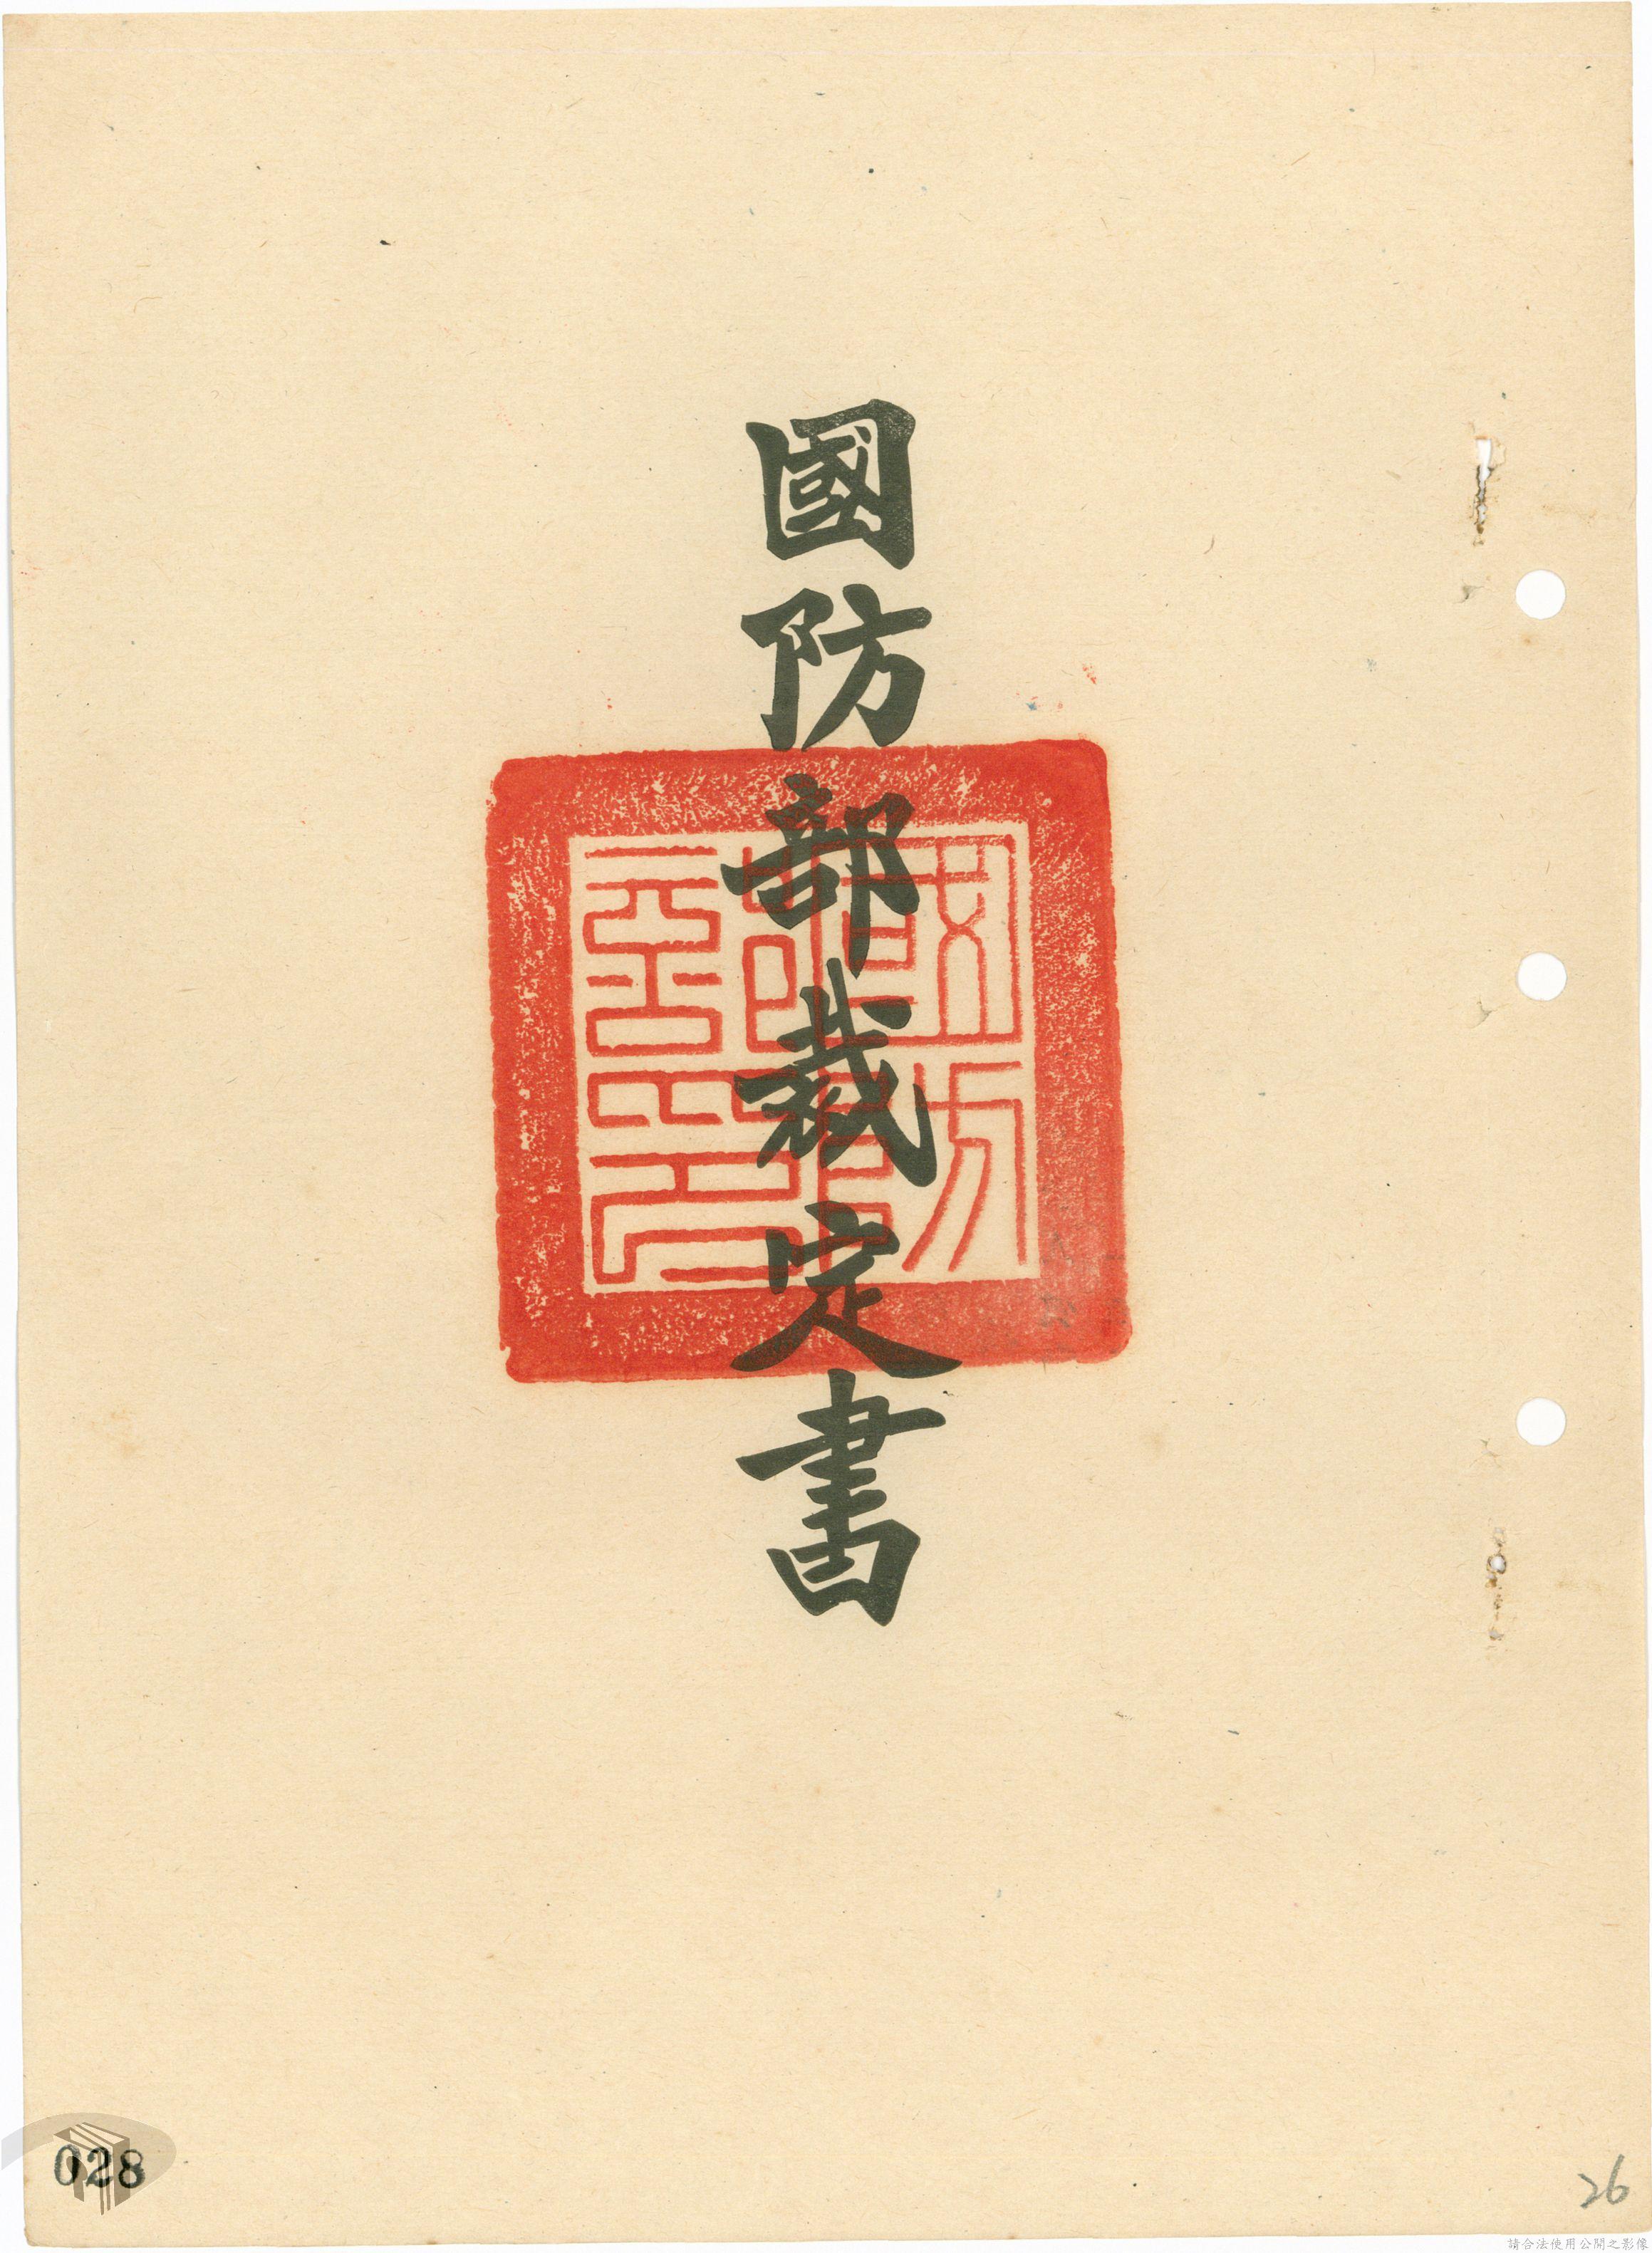 國防部裁定書
國防部印
028
26
請合法使用公開之影像